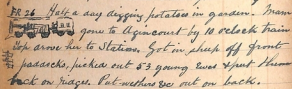 FR 26 Half a day digging potatoes in garden. Mam
gone to Agincourt by 10 o'clock train
drove her to Station. Got in sheep off front
paddock, picked out 53 young Ewes & put them
back on ridges. Put wethers &c out on back.